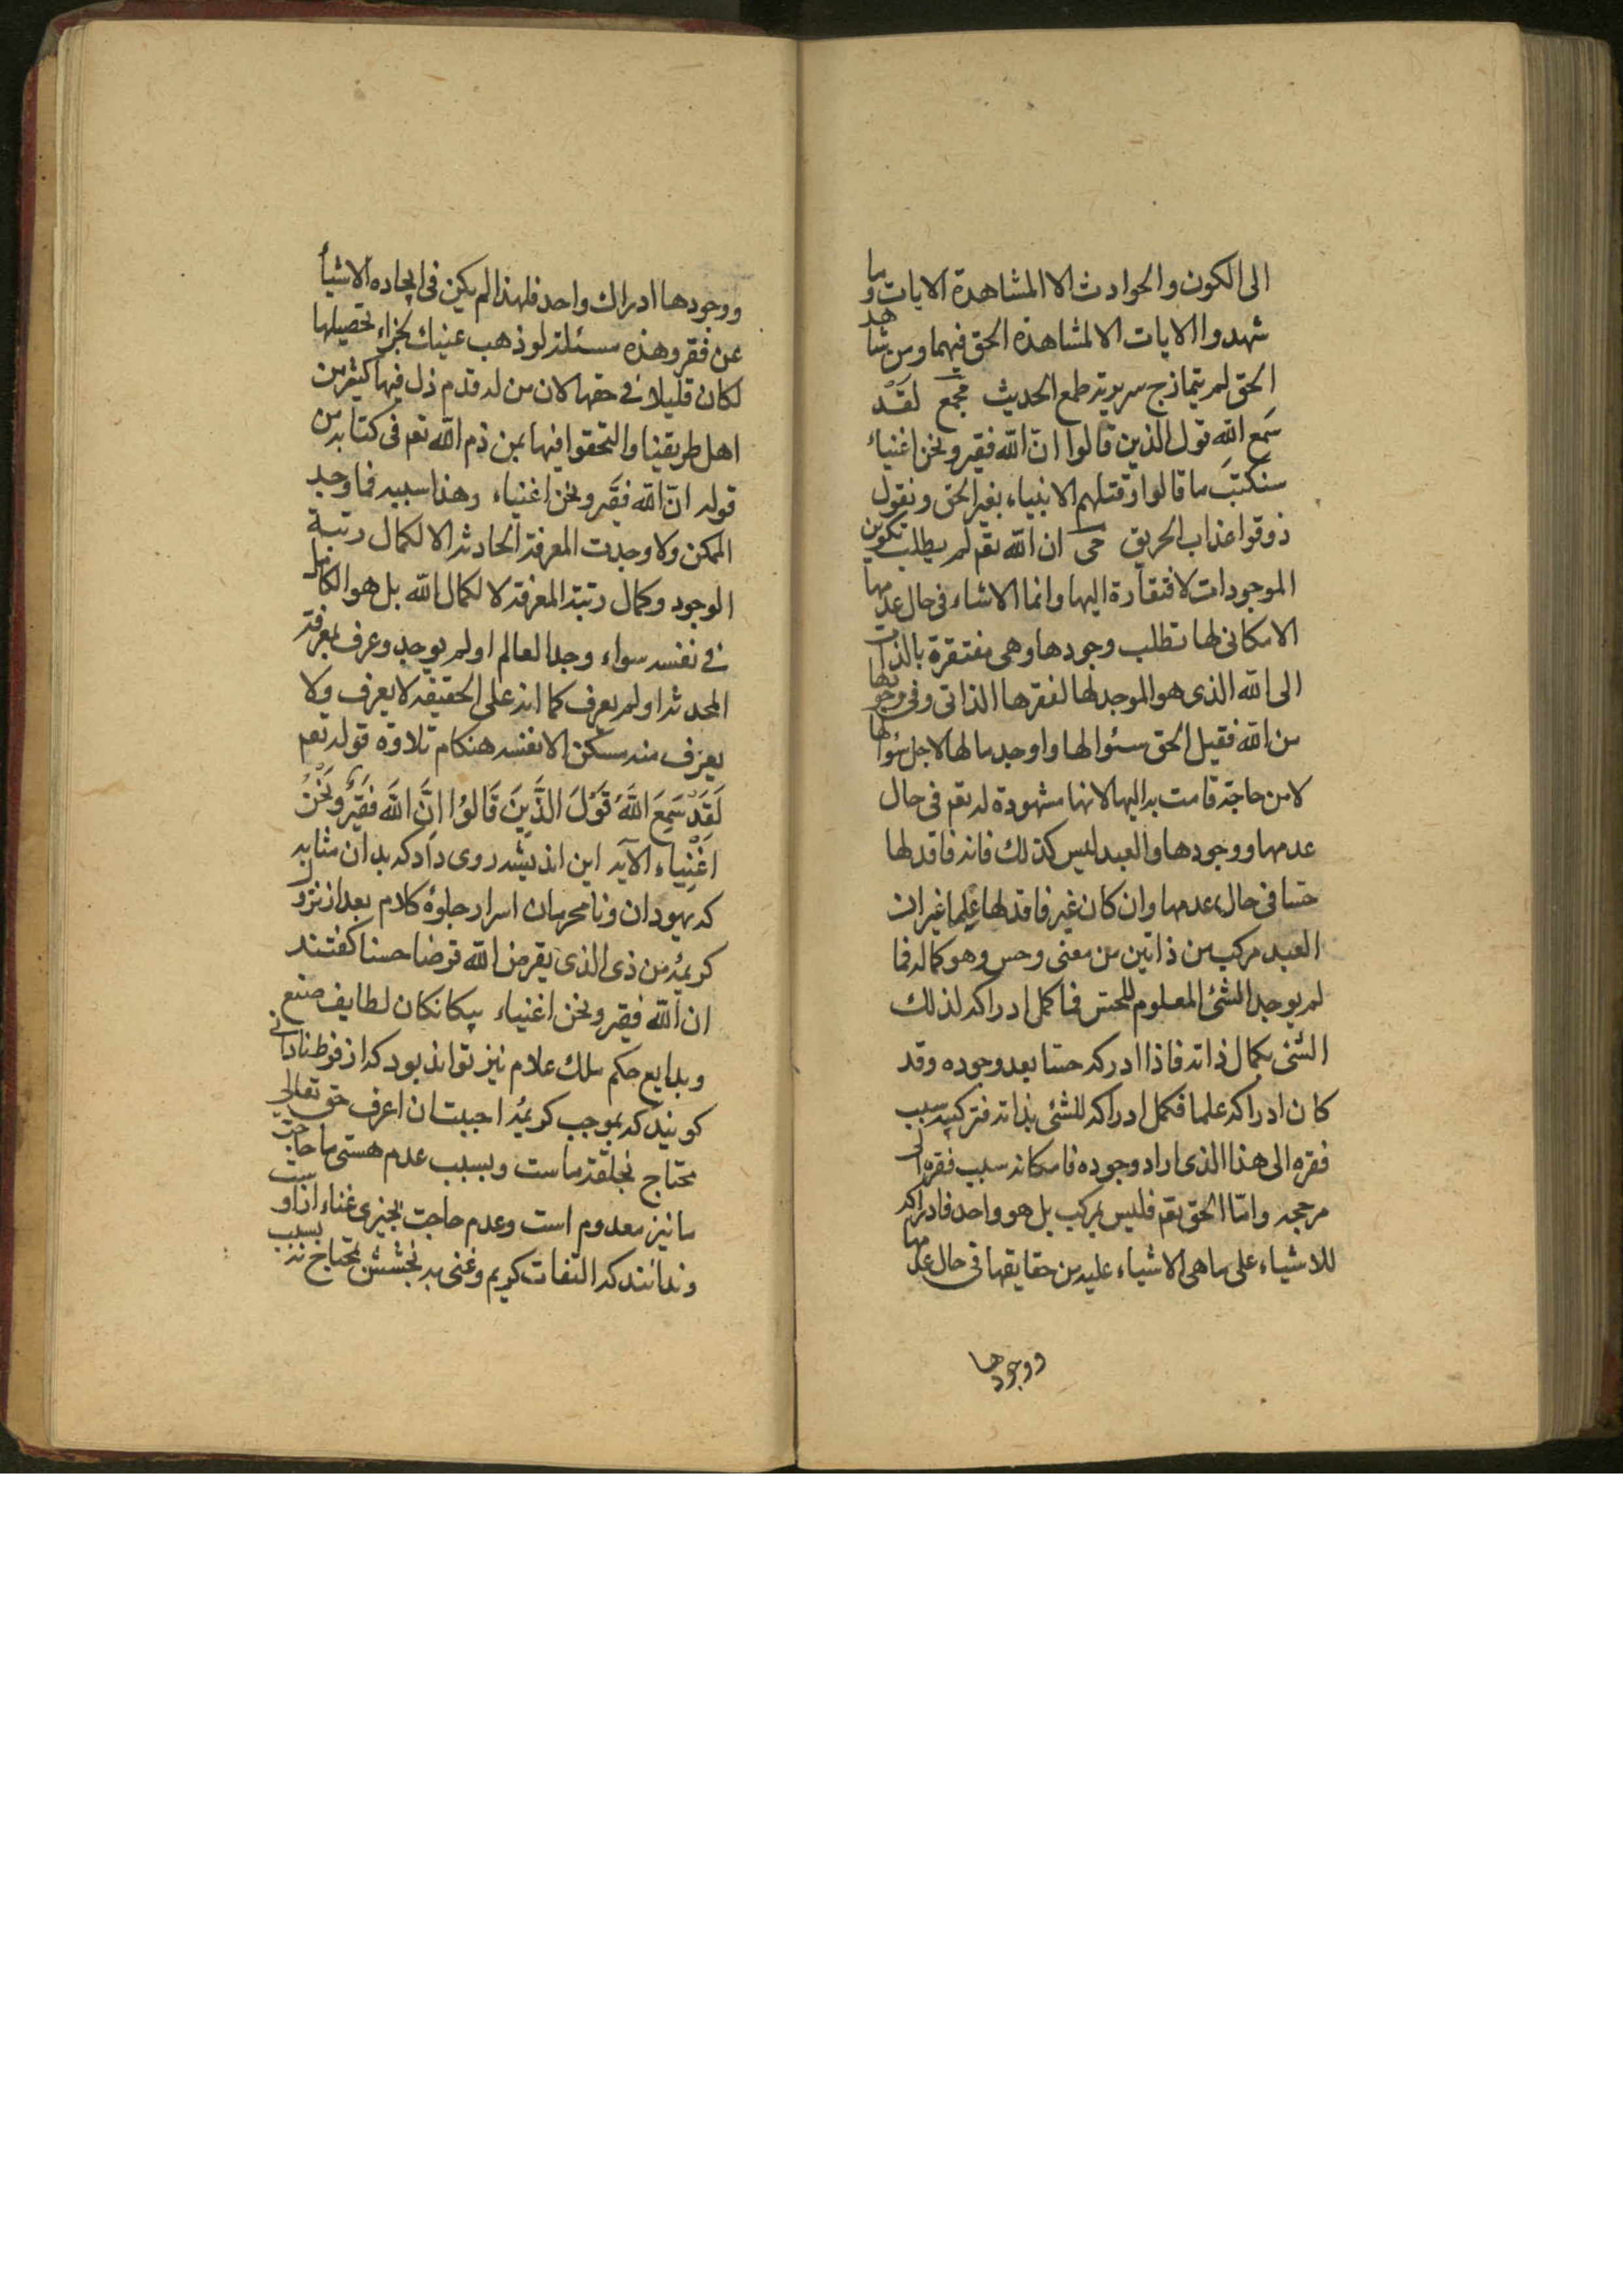 الى الكون والحوادث الا المشاهدة الايات وما
شهدوا الايات الا لمشاهدة الحق فيهما ومن شاهد
الحق لم يتمازج سريرته طمع الحديث مجمع لَقَدْ
سَمع اللّه قول الذين قالوا انّ اللّه فقير ونحن اغنياء
سنكتبَ ما قالوا وقتلهم الانبياء بغير الحق ونقول
ذوقوا عذاب الحريق محى ان اللّه تعم لم يطلب تكوين
الموجودات لافتقاره اليها وانما الاشاء فى حال عدمها
الامكانى لها تطلب وجودها وهى مفتقرة بالذات
الى اللّه الذى هو الموجد لها لفقرها الذاتى وفى وجودها
من اللّه فقبل الحق سئوالها واوجد ما لها لاجل سئوالها
لا من حاجة قامت به اليها لانها مشهودة له تعم فى حال
عدمها ووجودها والعبد ليس كذلك فانه فاقد لها
حسّا فى حال عدمها وان كان غير فاقد لها علما غير ان
العبد مركب من ذاتين من معنى وحس وهو كماله فما
لم يوجد الشئ المعلوم للحسّ فما كمل ادراكه لذلك
الشئ بكمال ذاته فاذا ادركه حسّا بعد وجوده وقد
كان ادراكه علما فكمل ادراكه للشئ بذاته فتركيبه سبب
فقره الى هذا الذى اراد وجوده فامكانه سبب فقره الى
مرجحه وامّا الحق تعم فليس بمركب بل هو واحد فادراكه
للاشياء على ما هى الاشياء عليه من حقايقها فى حال عدمها
ووجودها
ووجودها ادراك واحد فلهذا لم يكن فى ايجاده الاشيأ
عن فقر وهذه مسئلة لو ذهب عينيك لجزاء تحصيلها
لكان قليلا فى حقها لان من له قدم زل فيها كثير من
اهل طريقنا والتحقوا فيها بمن ذم اللّه تعم فى كتابه من
قوله انّ اللّه فقير ونحن اغنياء وهذا سببه فما وجد
الممكن ولا وجدت المعرفة الحادثة الا لكمال رتبة
الوجود وكمال رتبة المعرفة لا لكمال اللّه بل هو الكامل
فى نفسه سواء وجد العالم او لم يوجد وعرف بمعرفة
المحدثة او لم يعرف كما انه على الحقيقه لا يعرف ولا
يعرف منه ممكن الا نفسه هنكام تلاوة قوله تعم
لَقَدْ سَمِعَ اللَّهُ قَوْلَ الَّذِينَ قَالُوا اِنَّ اللَّهَ فَقِيرٌ وَنَحْنُ
اغْنِياء الآيه اين انديشه روى داد كه بدان مثابه
كه يهودان ونامحرمان اسرار جلوۀ كلام بعد از نزول
كريمۀ من ذى الذى يقرض اللّه قرضا حسنا كفتند
ان اللّه فقير ونحن اغنياء بيكانكان لطايف صنع
وبدايع حكم ملك علام نيز تواند بود كه از فرط نادانى
كويند كه بموجب كريمۀ احببت ان اعرف حق تعالى
محتاج بخلقة ماست وبسبب عدم هستى ما حاجت
ما نيز معدوم است وعدم حاجت بچيزى غناء از اوست
وندانند كه التفات كريم وغنى به بخشش محتاج نه بسبب